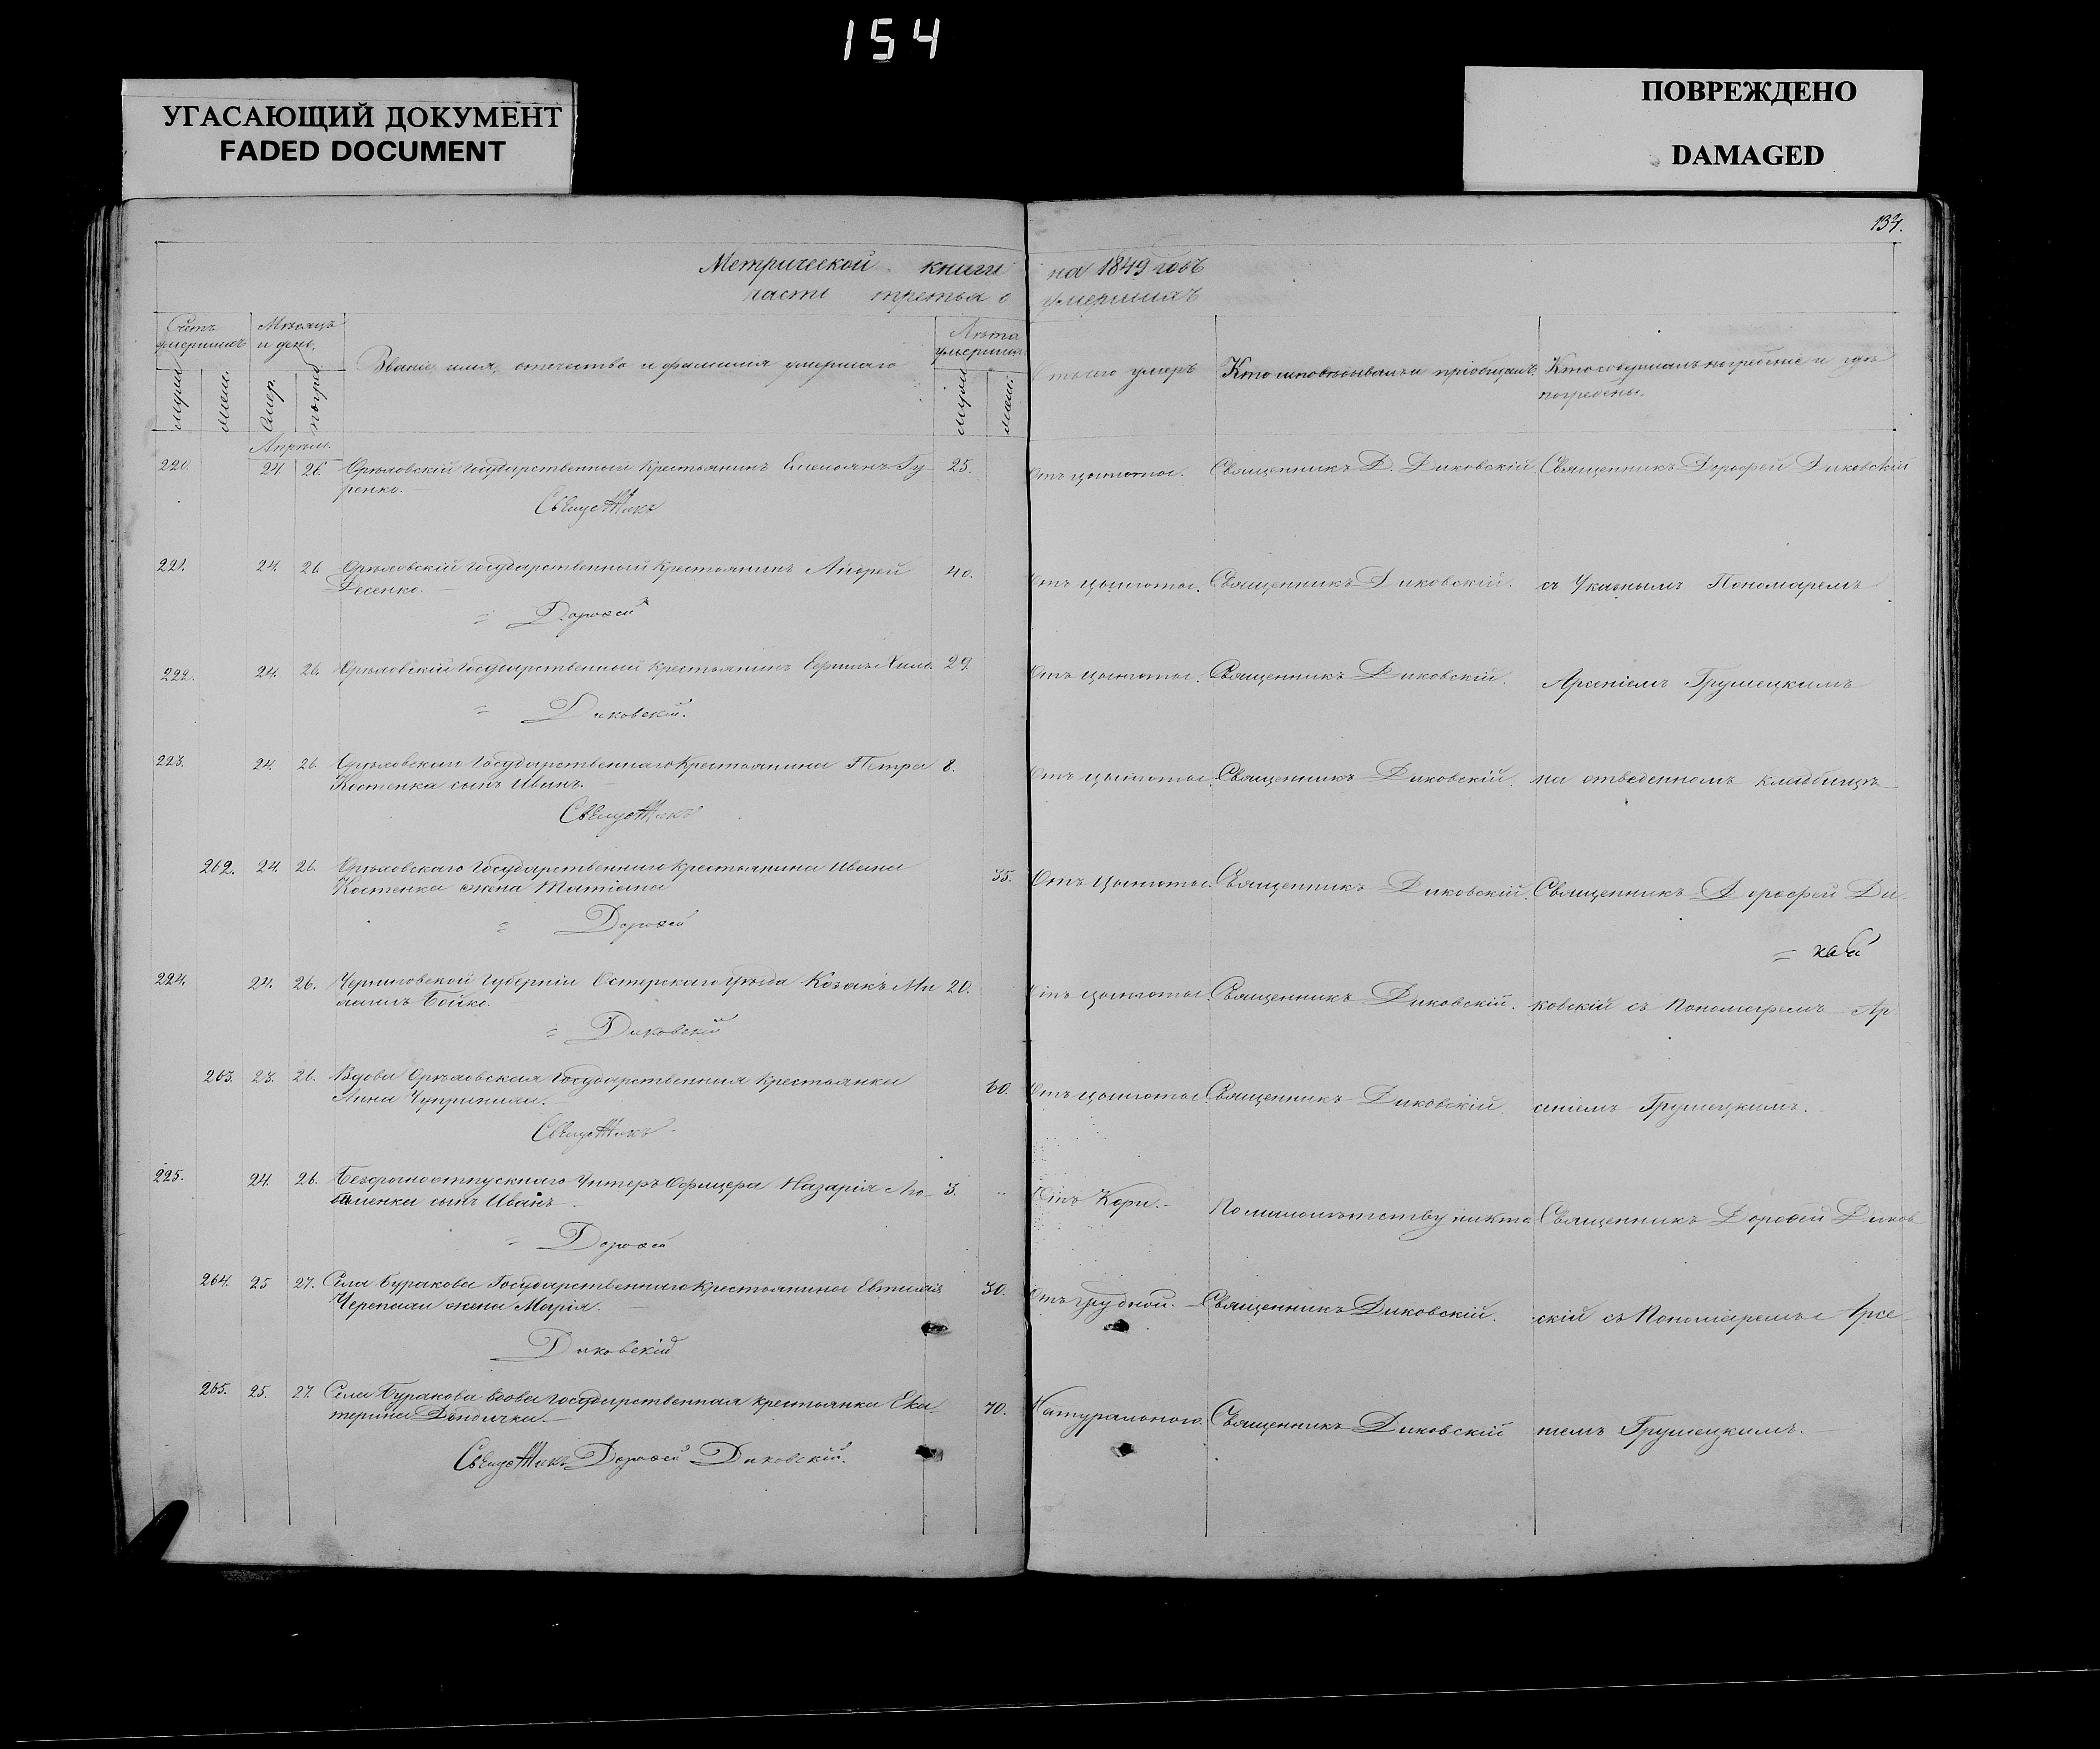 154
УГАСАЮЩИЙ ДОКУМЕНТ
FADED DOCUMENT
ПОВРЕЖДЕНО
DAMAGED
Метрической книги на 1849 годъ
часть третья о умершихъ
Счетъ умершихъ
Мѣсяцъ и день.
Званіе, имя, отечество и фамилія умершаго
Лѣта умерших
отъ чего умеръ
Кто исповѣдывалъ и пріобщалъ.
Кто совершалъ погребеніе и гдѣ
погребены.
Апрѣль.
220. 24 26. Орѣловскій Государственный Крестьянинъ Емельянъ Гу 25. Отъ цынготы. Священникъ Д. Диковскій. Священникъ Дорофей Диковскій
ренко.
221. 24. 26. Орѣловскій Государственный Крестьянинъ Андрей 40. Отъ цынготы. Священникъ Диковскій. съ Указнымъ Пономаремъ
Десенко.
Дорофей
222. 24. 26. Орѣловскій Государственный Крестьянинъ 29. Отъ цынготы. Священникъ Диковскій. Арсеніемъ Грушецкимъ
Диковскій.
223. 24. 26. Орѣловскаго Государственнаго Крестьянина Петра 8. Отъ цынготы. Священникъ Диковскій. на отведенномъ кладбищѣ
Костенка сынъ Иванъ.
262. 24. 26. Орѣловскаго Государственнаго Крестьянина Ивана 35. Отъ цынготы. Священникъ Диковскій. Священникъ Дорофей Ди
Костенка жена Татіана
Дорофей
224. 24. 26. Черниговской Губерніи Остерскаго уѣзда Козакъ Ми 20. Отъ цынготы. Священникъ Диковскій. ковскій съ Пономаремъ Ар
Бойко.
Диковскій
263. 23. 26. Вдова Орѣловская Государственная Крестьянка 60. Отъ цынготы. Священникъ Диковскій. сеніемъ Грушецкимъ.
Анна
225. 24. 26. Безсрочноотпускнаго Унтеръ Офицера Назарія 3. Отъ Кори. По малолѣтству никто Священникъ Дорофей Диков
сынъ Иванъ
Дорофей
264. 25 27. Села Буракова Государственнаго Крестьянина 30. Отъ грудной. Священникъ Диковскій. скій съ Пономаремъ Арсе
жена Марія.
Диковскій
265. 25. 27. Села Буракова вдова Государственная Крестьянка Ека 70. Натуральною. Священникъ Диковскій ніемъ Грушецкимъ.
терина
Дорофей Диковскій.